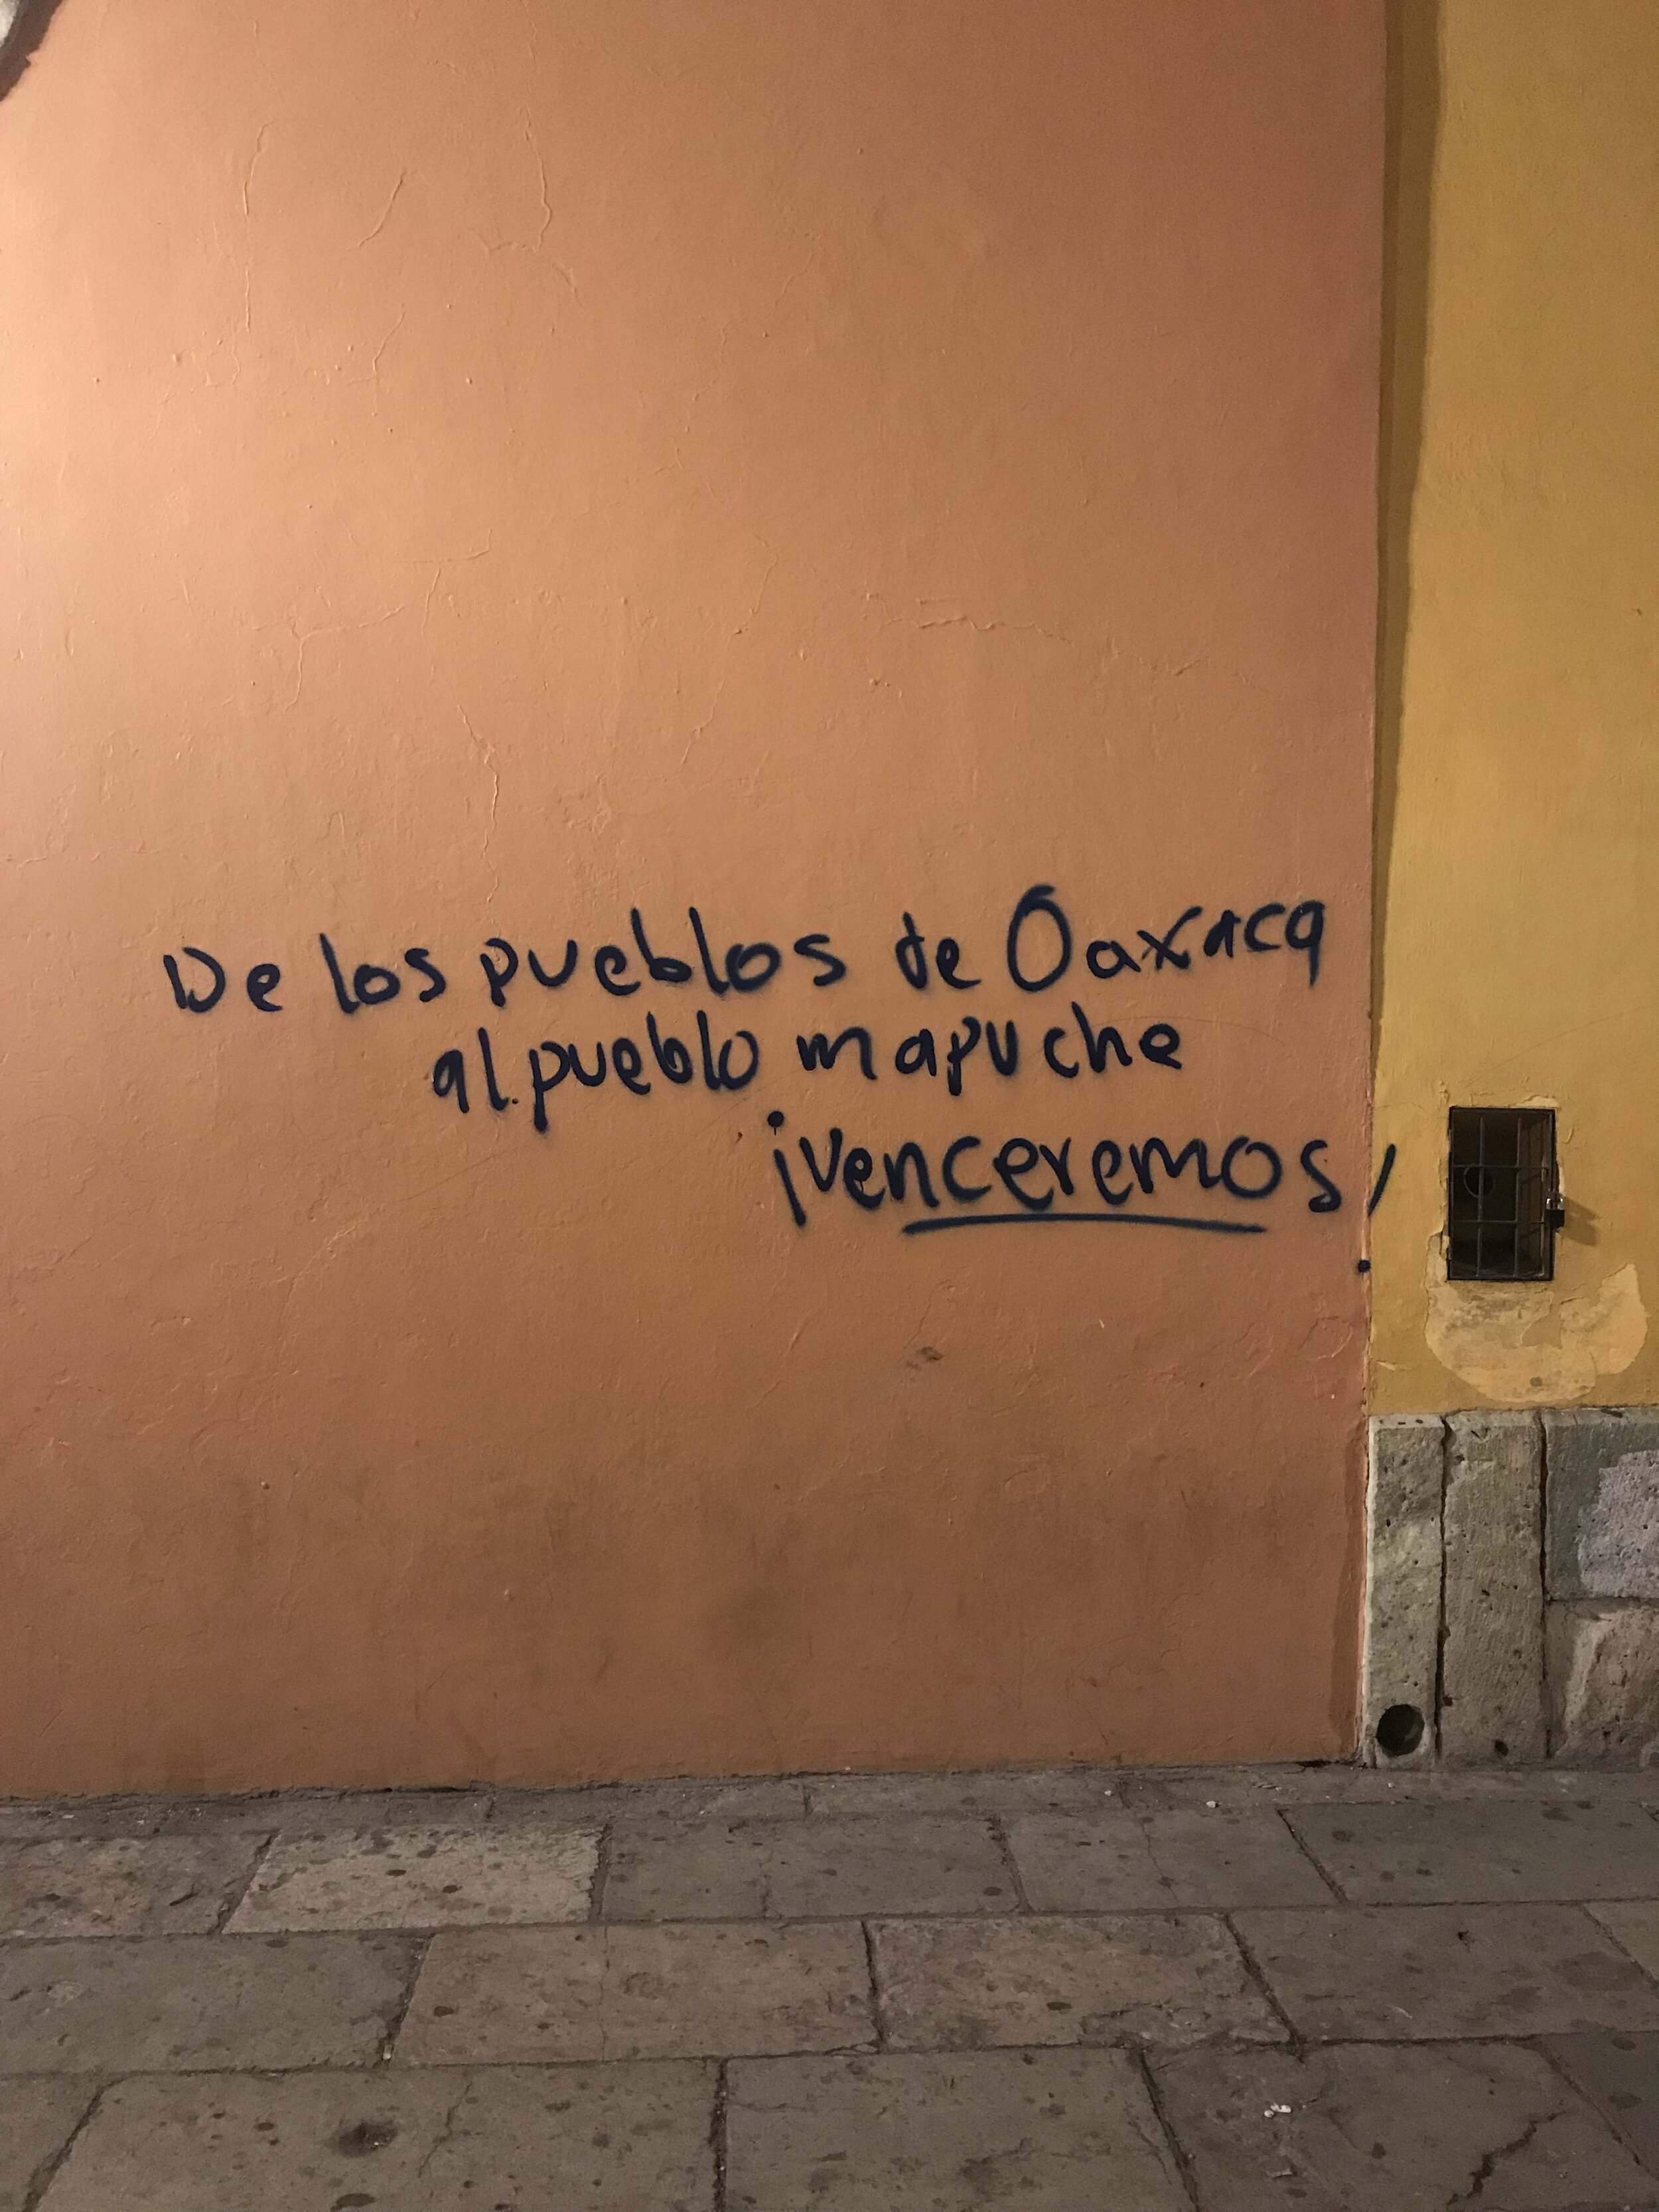 De los pueblos de Oaxaca
al pueblo mapuche
¡venceremos!